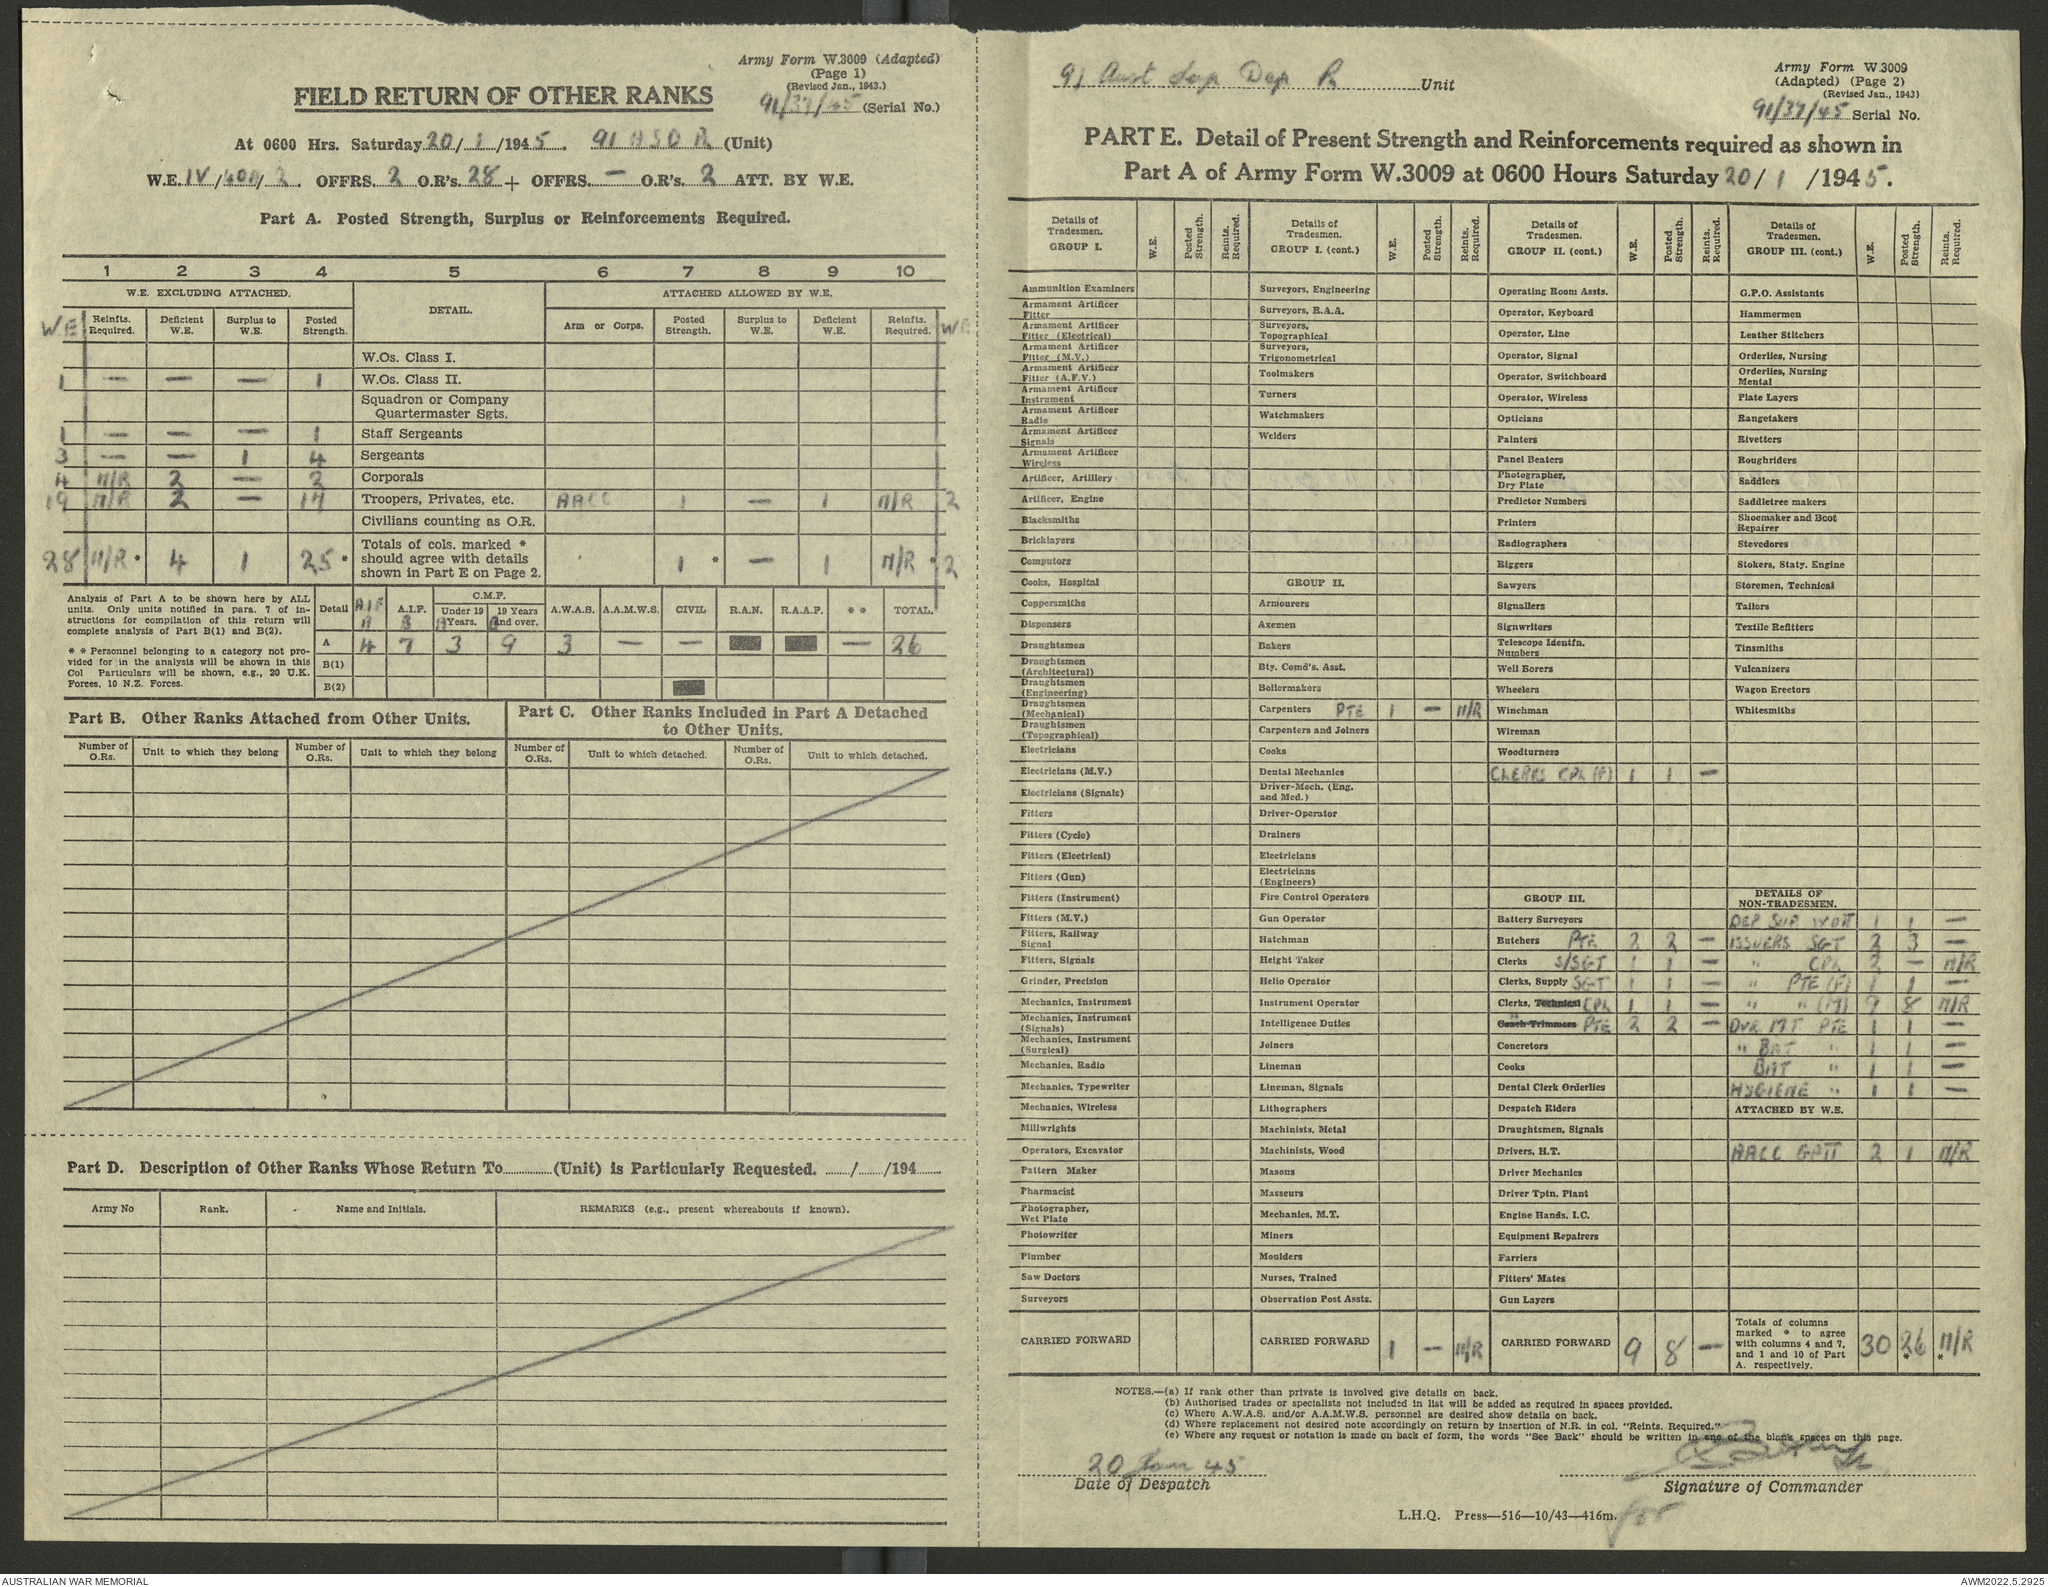 Army Form W.3009 (Adapted)
(Page 1)
(Revised Jan., 1943.)
FIELD RETURN OF OTHER RANKS
91/37/45 (Serial No.)
At 0600 Hrs. Saturday 20/1/1945. 91 A S D R (Unit)
W.E. IV/40A/2. OFFRS. 2 O.R's. 28 + OFFRS. — O.R's. 2 ATT. BY W.E.
Part A. Posted Strength, Surplus or Reinforcements Required.
1 2 3 4 5 6 7 8 9 10
W.E. EXCLUDING ATTACHED. DETAIL. ATTACHED ALLOWED BY W.E.
W.E Reinfts. Required. Deficient W.E. Surplus to W.E. Posted Strength. Arm or Corps. Posted Strength. Surplus to W.E. Deficient W.E. Reinfts. Required. WE
W.Os. Class I.
1 — — — 1 W.Os. Class II.
Squadron or Company Quartermaster Sgts.
1 — — — 1 Staff Sergeants
3 — — 1 4 Sergeants
4 N/R 2 — 2 Corporals
19 N/R 2 — 17 Troopers, Privates, etc. AACC 1 — 1 N/R 2
Civilians counting as O.R.
28 N/R * 4 1 25 * Totals of cols. marked * should agree with details shown in Part E on Page 2. 1 * — 1 N/R * 2
Analysis of Part A to be shown here by ALL units. Only units notified in para. 7 of instructions for compilation of this return will complete analysis of Part B(1) and B(2).
* * Personnel belonging to a category not provided for in the analysis will be shown in this Col Particulars will be shown, e.g., 20 U.K. Forces, 10 N.Z. Forces.
Detail A.I.F A A.I.F. B C.M.F. Under 19 Years. A 19 Years and over. B A.W.A.S. A.A.M.W.S. CIVIL R.A.N. R.A.A.F. * * TOTAL.
A 4 7 3 9 3 — — — 26
B(1)
B(2)
Part B. Other Ranks Attached from Other Units.
Part C. Other Ranks Included in Part A Detached to Other Units.
Number of O.Rs. Unit to which they belong Number of O.Rs. Unit to which they belong Number of O.Rs. Unit to which detached. Number of O.Rs. Unit to which detached.
Part D. Description of Other Ranks Whose Return To............(Unit) is Particularly Requested. ....../....../194......
Army No Rank. Name and Initials. REMARKS (e.g., present whereabouts if known).
91 Aust Sup Dep R Unit
Army Form W.3009
(Adapted) (Page 2)
(Revised Jan., 1943)
91/37/45 Serial No.
PART E. Detail of Present Strength and Reinforcements required as shown in
Part A of Army Form W.3009 at 0600 Hours Saturday 20/1/1945.
Details of Tradesmen. GROUP I. W.E. Posted Strength. Reints. Required.
Ammunition Examiners
Armament Artificer Fitter
Armament Artificer Fitter (Electrical)
Armament Artificer Fitter (M.V.)
Armament Artificer Fitter (A.F.V.)
Armament Artificer Instrument
Armament Artificer Radio
Armament Artificer Signals
Armament Artificer Wireless
Artificer, Artillery
Artificer, Engine
Blacksmiths
Bricklayers
Computors
Cooks, Hospital
Coppersmiths
Dispensers
Draughtsmen
Draughtsmen (Architectural)
Draughtsmen (Engineering)
Draughtsmen (Mechanical)
Draughtsmen (Topographical)
Electricians
Electricians (M.V.)
Electricians (Signals)
Fitters
Fitters (Cycle)
Fitters (Electrical)
Fitters (Gun)
Fitters (Instrument)
Fitters (M.V.)
Fitters, Railway Signal
Fitters, Signals
Grinder, Precision
Mechanics, Instrument
Mechanics, Instrument (Signals)
Mechanics, Instrument (Surgical)
Mechanics, Radio
Mechanics, Typewriter
Mechanics, Wireless
Millwrights
Operators, Excavator
Pattern Maker
Pharmacist
Photographer, Wet Plate
Photowriter
Plumber
Saw Doctors
Surveyors
CARRIED FORWARD
Details of Tradesmen. GROUP I. (cont.) W.E. Posted Strength. Reints. Required.
Surveyors, Engineering
Surveyors, R.A.A.
Surveyors, Topographical
Surveyors, Trigonometrical
Toolmakers
Turners
Watchmakers
Welders
GROUP II.
Armourers
Axemen
Bakers
Bty. Comd's. Asst.
Boilermakers
Carpenters PTE 1 — N/R
Carpenters and Joiners
Cooks
Dental Mechanics
Driver-Mech. (Eng. and Med.)
Driver-Operator
Drainers
Electricians
Electricians (Engineers)
Fire Control Operators
Gun Operator
Hatchman
Height Taker
Helio Operator
Instrument Operator
Intelligence Duties
Joiners
Lineman
Lineman, Signals
Lithographers
Machinists, Metal
Machinists, Wood
Masons
Masseurs
Mechanics, M.T.
Miners
Moulders
Nurses, Trained
Observation Post Assts.
CARRIED FORWARD 1 — N/R
Details of Tradesmen. GROUP II. (cont) W.E. Posted Strength. Reints. Required.
Operating Room Assts.
Operator, Keyboard
Operator, Line
Operator, Signal
Operator, Switchboard
Operator, Wireless
Opticians
Painters
Panel Beaters
Photographer, Dry Plate
Predictor Numbers
Printers
Radiographers
Riggers
Sawyers
Signallers
Signwriters
Telescope Identfn. Numbers
Well Borers
Wheelers
Winchman
Wireman
Woodturners
CLERKS CPL (F) 1 1 —
GROUP III.
Battery Surveyors
Butchers PTE 2 2 —
Clerks S/SGT 1 1 —
Clerks, Supply SGT 1 1 —
Clerks, Technical CPL 1 1 —
Coach Trimmers " PTE 2 2 —
Concretors
Cooks
Dental Clerk Orderlies
Despatch Riders
Draughtsmen, Signals
Drivers, H.T.
Driver Mechanics
Driver Tptn. Plant
Engine Hands, I.C.
Equipment Repairers
Farriers
Fitters' Mates
Gun Layers
CARRIED FORWARD 9 8 —
Details of Tradesmen. GROUP III. (cont.) W.E. Posted Strength. Reints. Required.
G.P.O. Assistants
Hammermen
Leather Stitchers
Orderlies, Nursing
Orderlies, Nursing Mental
Plate Layers
Rangetakers
Rivetters
Roughriders
Saddlers
Saddletree makers
Shoemaker and Boot Repairer
Stevedores
Stokers, Staty. Engine
Storemen, Technical
Tailors
Textile Refitters
Tinsmiths
Vulcanizers
Wagon Erectors
Whitesmiths
DETAILS OF NON-TRADESMEN.
DEP SUP WOII 1 1 —
ISSUERS SGT 2 3 —
" CPL 2 — N/R
" PTE (F) 1 1 —
" " (M) 9 8 N/R
DVR M.T. PTE 1 1 —
" BAT " 1 1 —
BAT " 1 1 —
HYGIENE " 1 1 —
ATTACHED BY W.E.
AACC GPII 2 1 N/R
Totals of columns marked * to agree with columns 4 and 7, and 1 and 10 of Part A. respectively. 30 26 * N/R *
NOTES.—(a) If rank other than private is involved give details on back.
(b) Authorised trades or specialists not included in list will be added as required in spaces provided.
(c) Where A.W.A.S. and/or A.A.M.W.S. personnel are desired show details on back.
(d) Where replacement not desired note accordingly on return by insertion of N.R. in col. "Reints. Required."
(e) Where any request or notation is made on back of form, the words "See Back" should be written in one of the blank spaces on this page.
20 Jan 45
Date of Despatch
Signature of Commander
for
L.H.Q. Press—516—10/43—416m.
AUSTRALIAN WAR MEMORIAL
AWM2022.5.2925